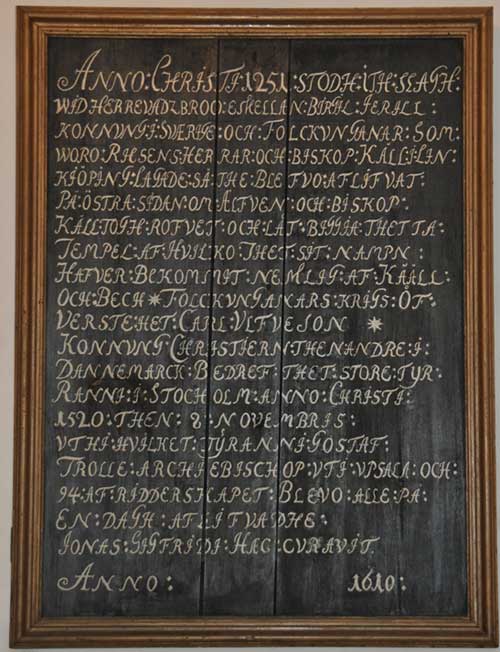 ANNO:CHRISTI:1251:STODH:ITH:SSAGH:
WIDHERREVADZBROO:EMELLAN:BIRGE:IERILL:
KONNVNG:I:SVERIGE:OCH:FOLCKVNGANAR:SOM:
WORO:RIESENS:HERRAR:OCH:BISKOP:KÄLL:I:LIN:
KIÖPING:LAGADE:SÅ:THE:BLEFVO:AFLIFVAT:
PÅ:ÖSTRA:SIDAN:OM:ÄLFVEN:OCH:BISKOP:
KÄLL:TOGH:ROFVET:OCH:LÄT:BIGGIA:THETTA:
TEMPEL:AF:HVILKO:THET:SIT:NAMPN:
HAFVER:BEKOMMIT:NEMLIG:AF:KÄÄLL:
OCH:BECH*FOLCKVNGANARS:KRIGS:ÖF:
VERSTE:HET:CARL:VLFVESON *
KONNVNG:CHRISTIERN:THENANDRE:I:
DANNEMARCK:BEDREF:THET:STORE:TYR:
RANNI:I:STOCHOLM:ANNO:CHRISTI:
1520:THEN:8:NOVEMBRIS:
VTHI:HVILKET:TYRANNI:GOSTAF:
TROLLE:ARCHIEBISCHOP:VTI:VPSALA:OCH:
94:AF:RIDDERSKAPET:BLEVO:ALLE:PÅ:
EN:DAGH:AFLIFVADHE:
IONAS:SIGFRIDI:HÆC:CVRAVIT.
ANNO: 1610: